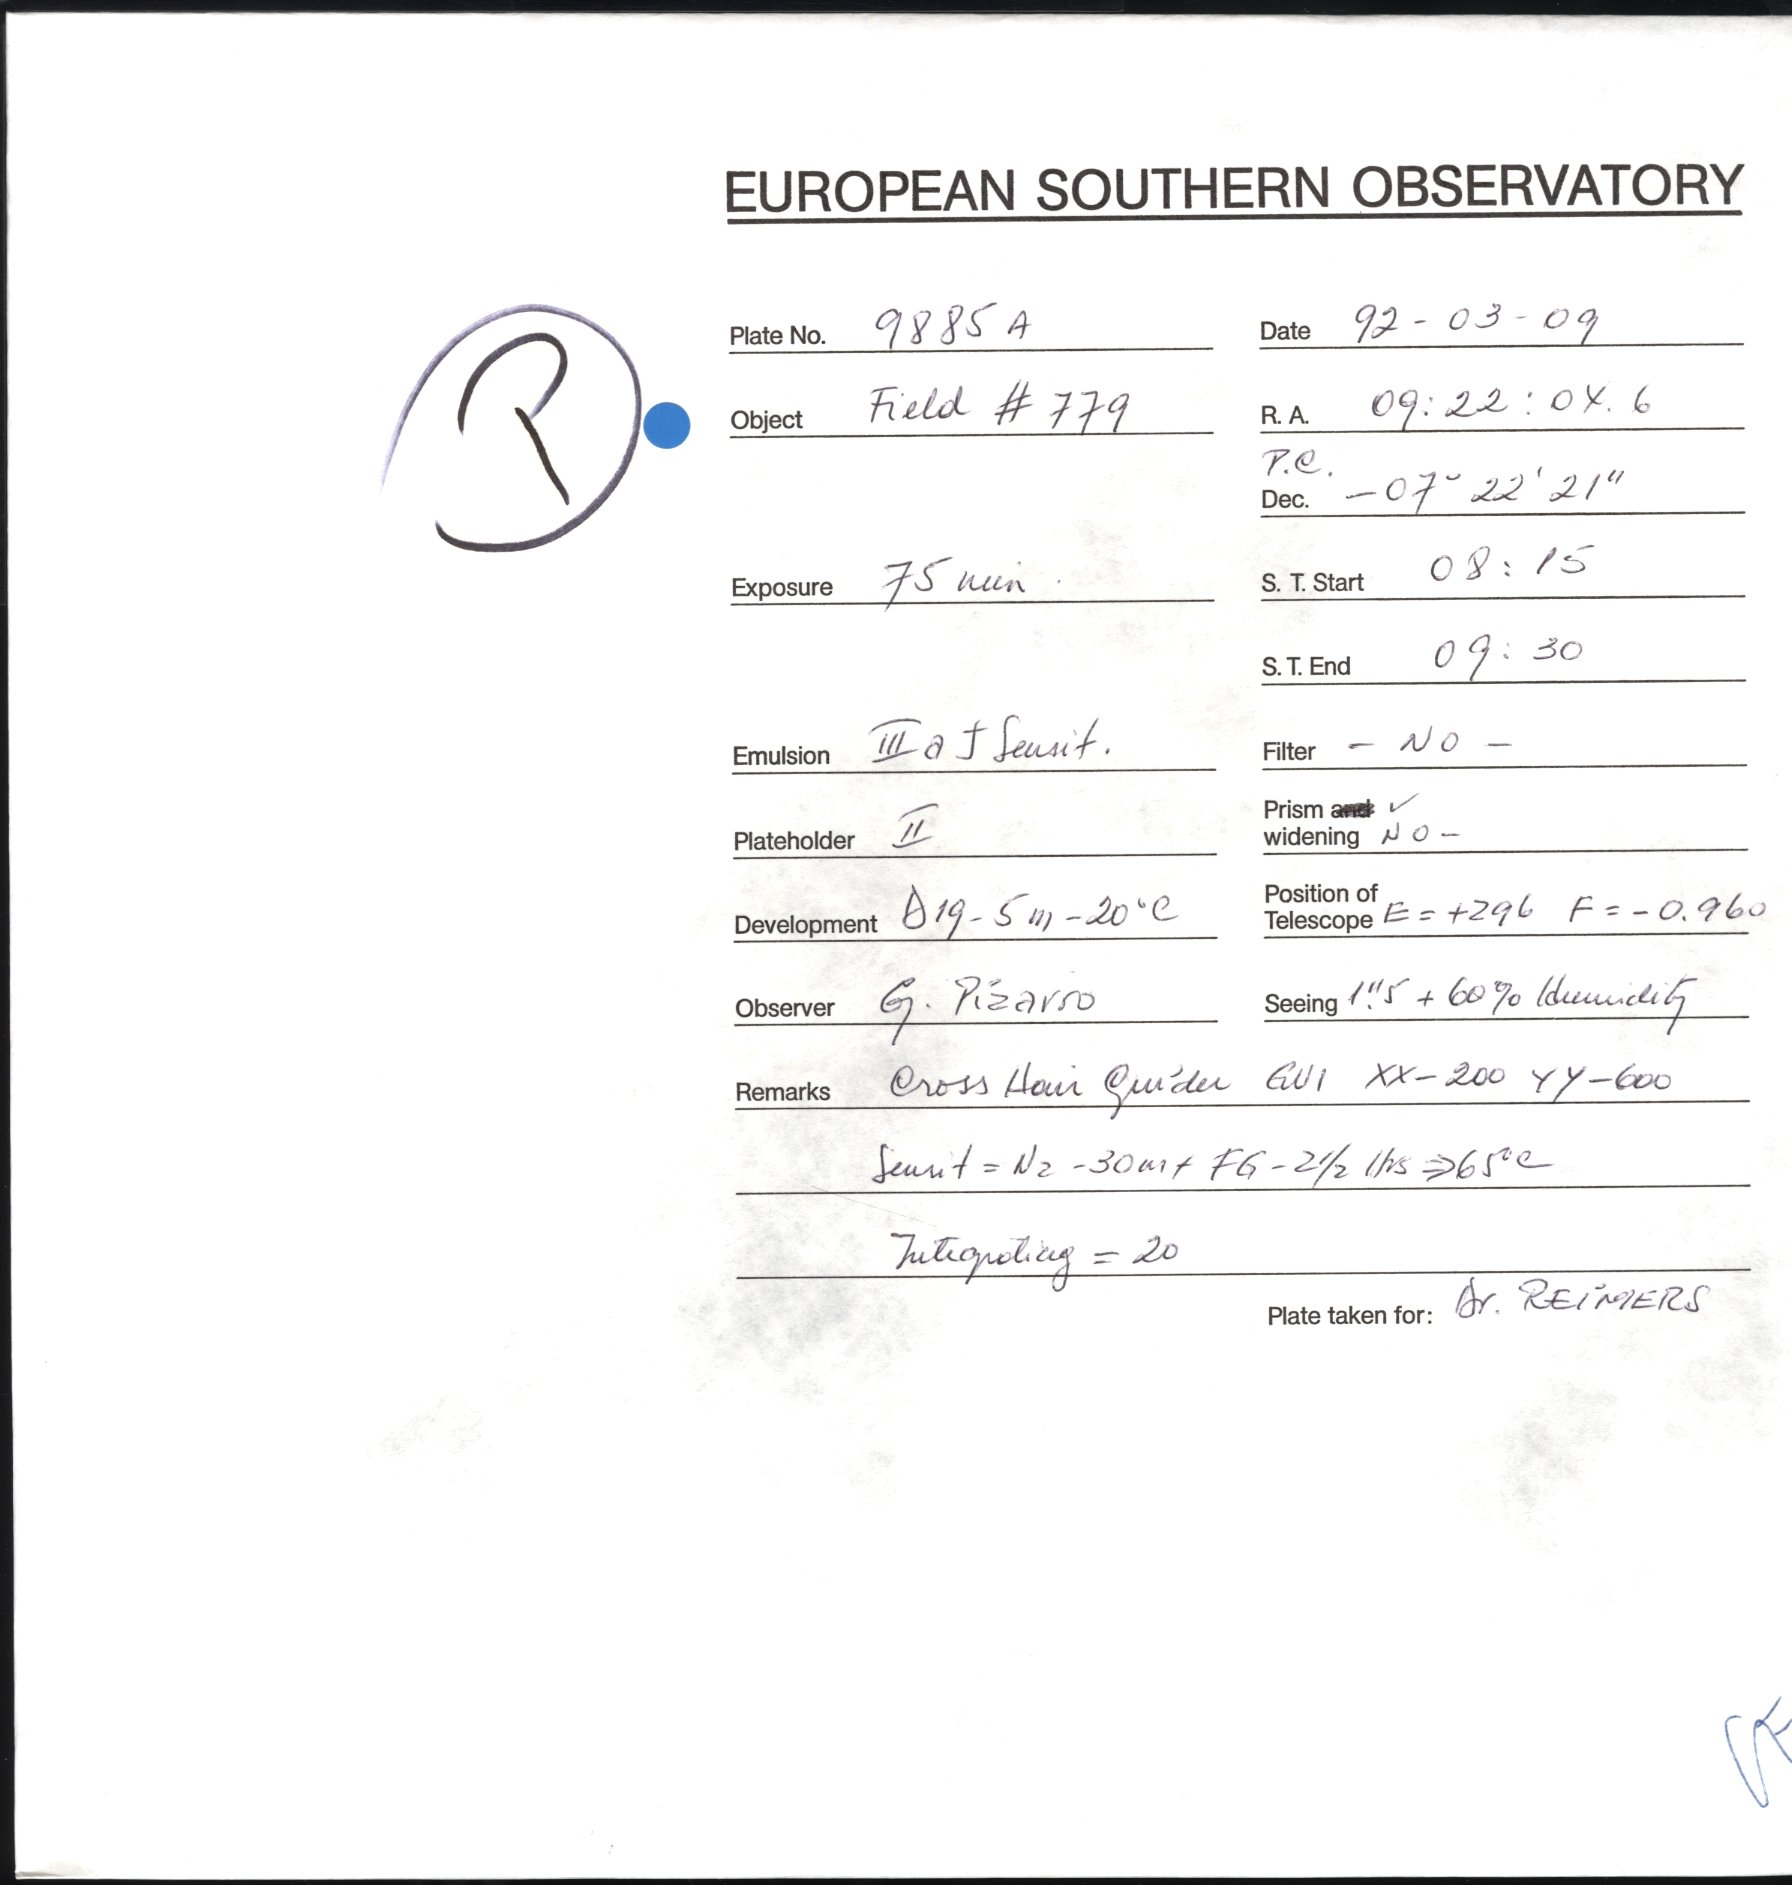 EUROPEAN SOUTHERN OBSERVATORY
R
Plate No. 9885 A
Date 92-03-09
Object Field # 779
R. A. 09:22:04.6
P.C.
Dec. -07° 22' 21"
Exposure 75 min.
S. T. Start 08:15
S. T. End 09:30
Emulsion III a J Sensit.
Filter - NO -
Plateholder II
Prism and ✓
widening NO -
Development D19 - 5 m - 20°C
Position of
Telescope E = +296 F = -0.960
Observer G. Pizarro
Seeing 1"5 + 60% Humidity
Remarks Cross Hair Guider GUI XX-200 YY-600
Sensit = N2 - 30m + FG - 2 1/2 Hrs => 65°C
Integrating = 20
Plate taken for: Dr. REIMERS